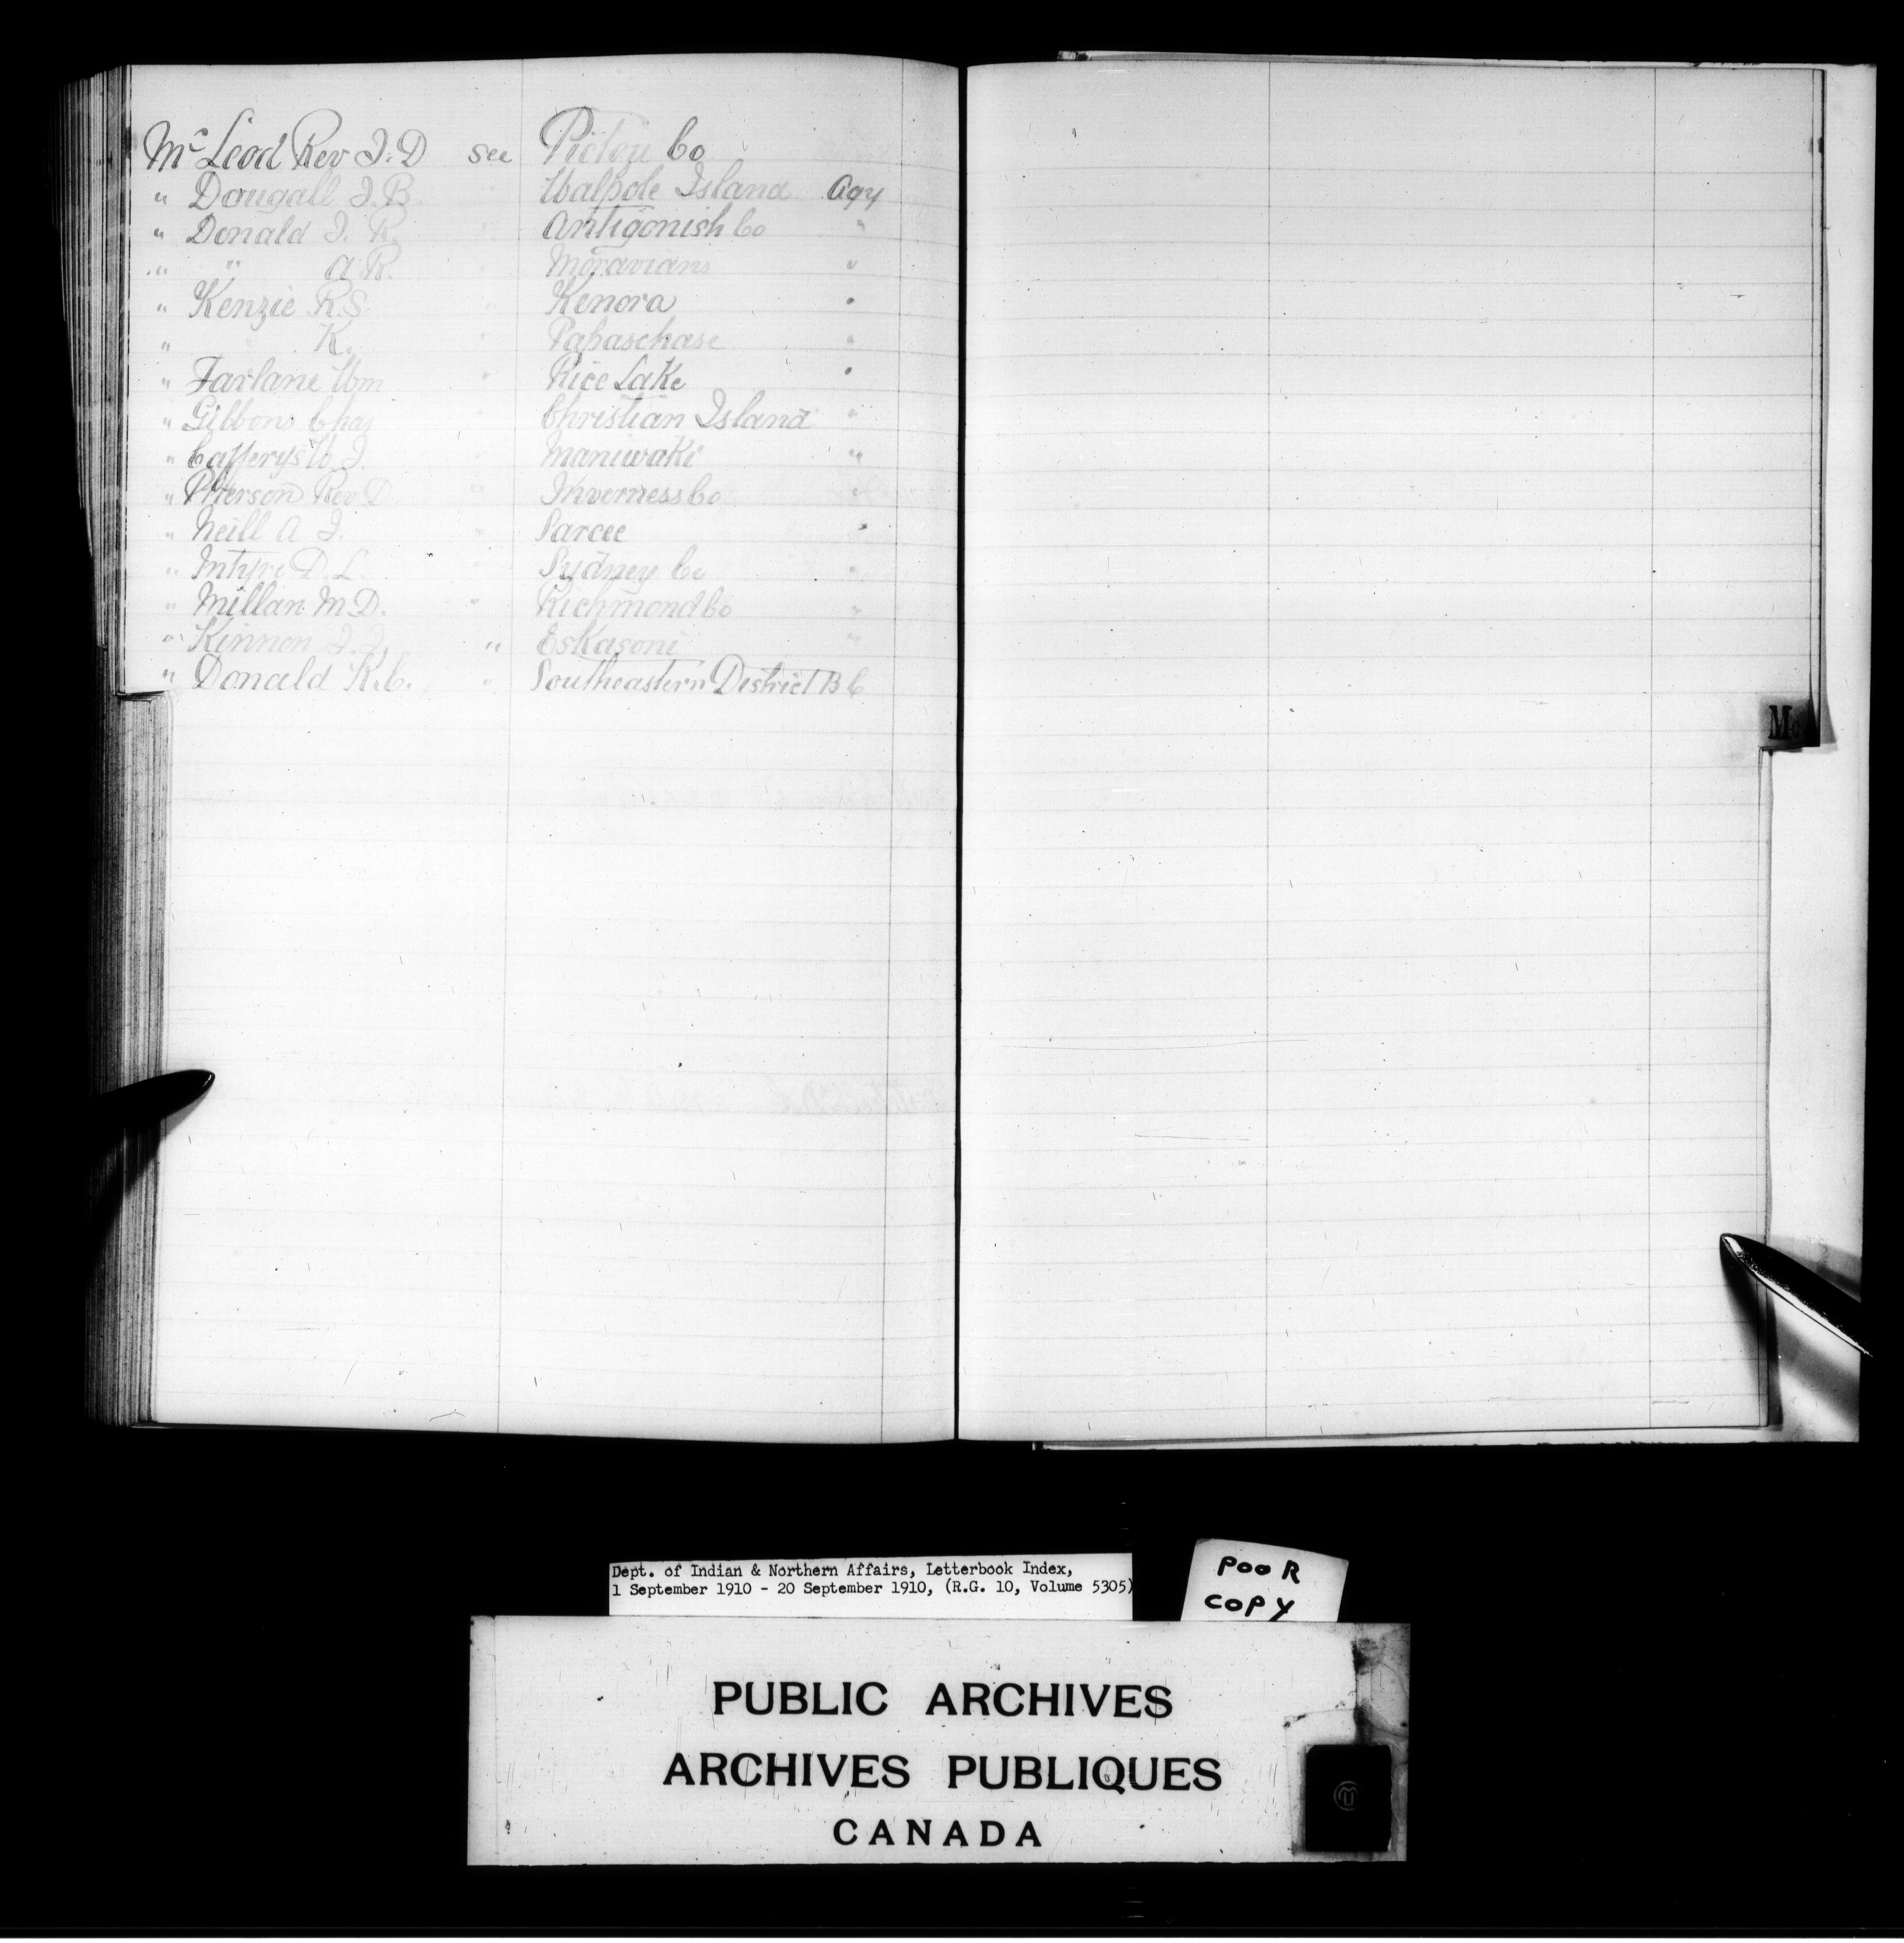 Mc Leod Rev J. D see Pictou Co
" Dougall J. B. " Walpole Island Agy
" Donald J. R. " Antigonish Co "
" " A. R. " Moravians "
" Kenzie R. S. " Kenora "
" K. " Papaschase "
" Farlane Wm " Rice Lake "
" Gibbons Chas " Christian Island "
" Cafferys W J. " Maniwaki "
" Pherson Rev D. " Inverness Co "
" Neill A J. " Sarcee "
" Intyre D. L. " Sydney Co "
" Millan M. D. " Richmond Co "
" Kinnon J. J. " Eskasoni "
" Donald R. C. " Southeastern District B C
Mc
Dept. of Indian & Northern Affairs, Letterbook Index,
1 September 1910 - 20 September 1910, (R.G. 10, Volume 5305)
POOR
COPY
PUBLIC ARCHIVES
ARCHIVES PUBLIQUES
CANADA